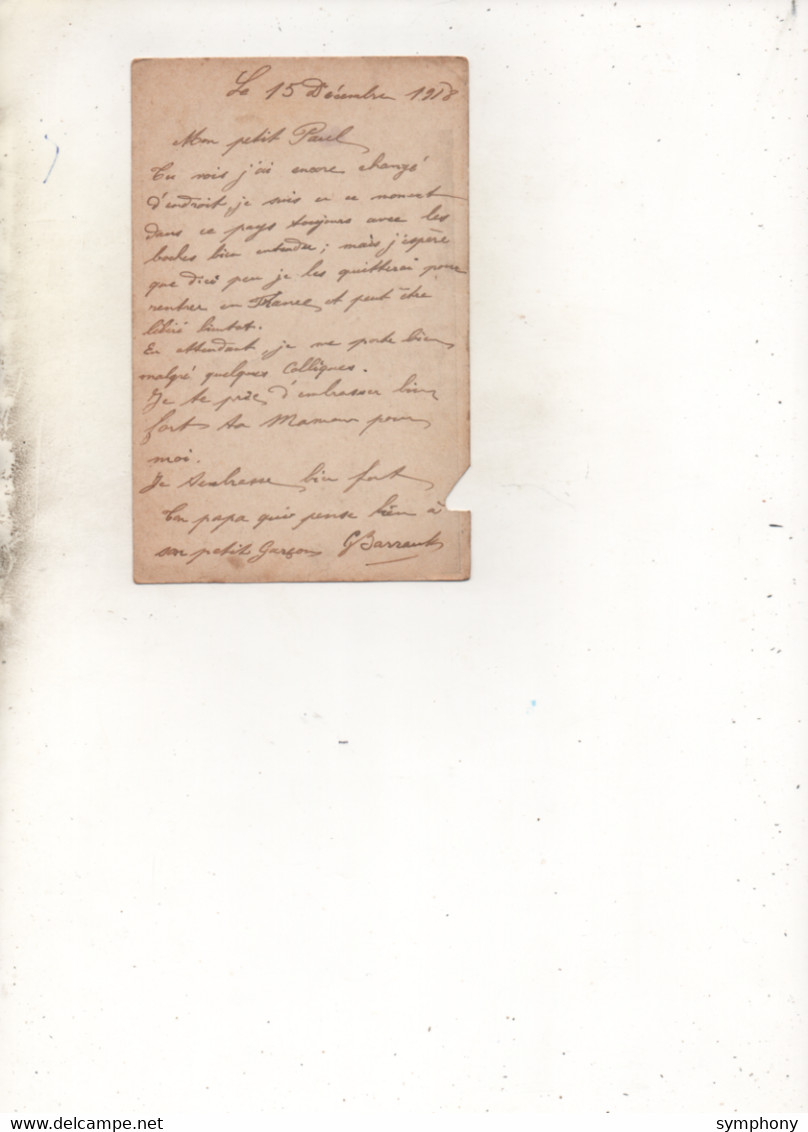 Le 15 Décembre 1918
Mon petit Paul
Tu vois j'ai encore changé
d'endroit, je suis en ce moment
dans ce pays toujours avec les
boches bien entendu; mais j'espère
que dici peu je les quitterai pour
rentrer en France, et peut être
libéré bientot.
En attendant, je me porte bien
malgré quelques Colliques.
Je te prie, d'embrasser bien
fort ta Maman pour
moi.
Je t'embrasse bien fort
Ton papa qui pense bien à
son petit Garçon G Barrault
www.delcampe.net
symphony